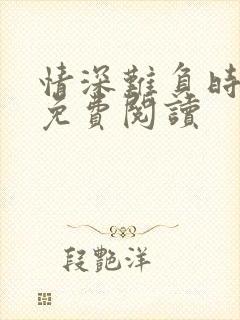 情深難負時
免費閱讀
段艷洋